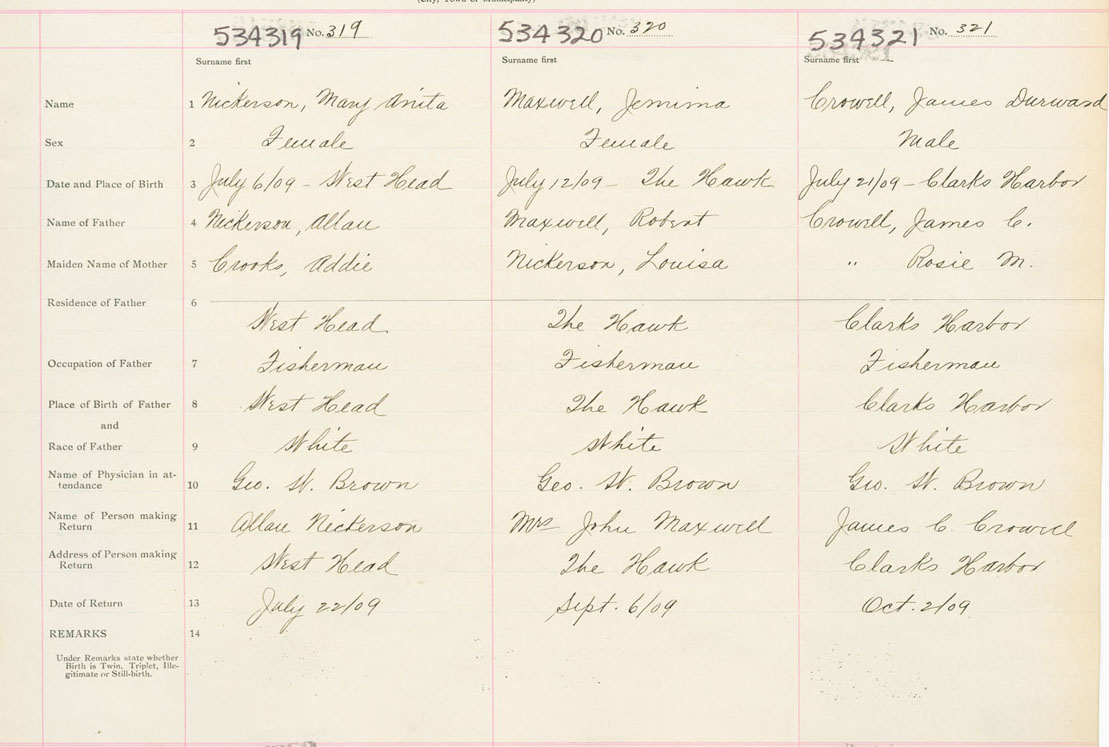 (City, Town or Municipality)
534319 No. 319 534320 No. 320 534321 No. 321
Surname first Surname first Surname first
Name 1 Nickerson, Mary Anita Maxwell, Jemima Crowell, James Durward
Sex 2 Female Female Male
Date and Place of Birth 3 July 6/09 - West Head July 12/09 - The Hawk July 21/09 - Clarks Harbor
Name of Father 4 Nickerson, Allan Maxwell, Robert Crowell, James C.
Maiden Name of Mother 5 Crooks, Addie Nickerson, Louisa " Rosie M.
Residence of Father 6
West Head The Hawk Clarks Harbor
Occupation of Father 7 Fisherman Fisherman Fisherman
Place of Birth of Father 8 West Head The Hawk Clarks Harbor
and
Race of Father 9 White White White
Name of Physician in at-
tendance 10 Geo. W. Brown Geo. W. Brown Geo. W. Brown
Name of Person making
Return 11 Allan Nickerson Mrs John Maxwell James C. Crowell
Address of Person making
Return 12 West Head The Hawk Clarks Harbor
Date of Return 13 July 22/09 Sept. 6/09 Oct. 2/09
REMARKS 14
Under Remarks state whether
Birth is Twin, Triplet, Ille-
gitimate or Still-birth.